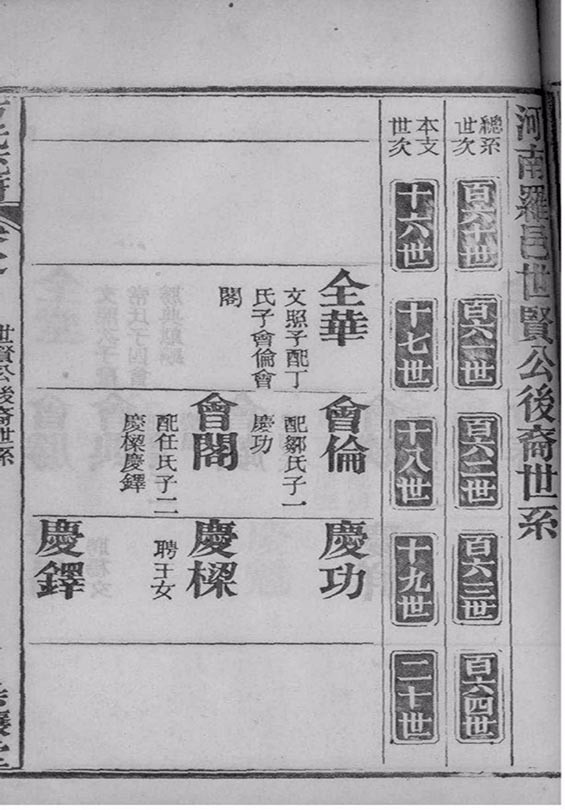 河南羅邑世賢公後裔世系
總系世次
百六十世
百六一世
百六二世
百六三世
百六四世
本支世次
十六世
十七世
十八世
十九世
二十世
仝華
文照子配丁
氏子會倫會
閣
會倫
配鄒氏子一
慶功
會閣
配任氏子二
慶樑慶鐸
慶功
慶樑
聘王女
慶鐸
世賢公後裔世系